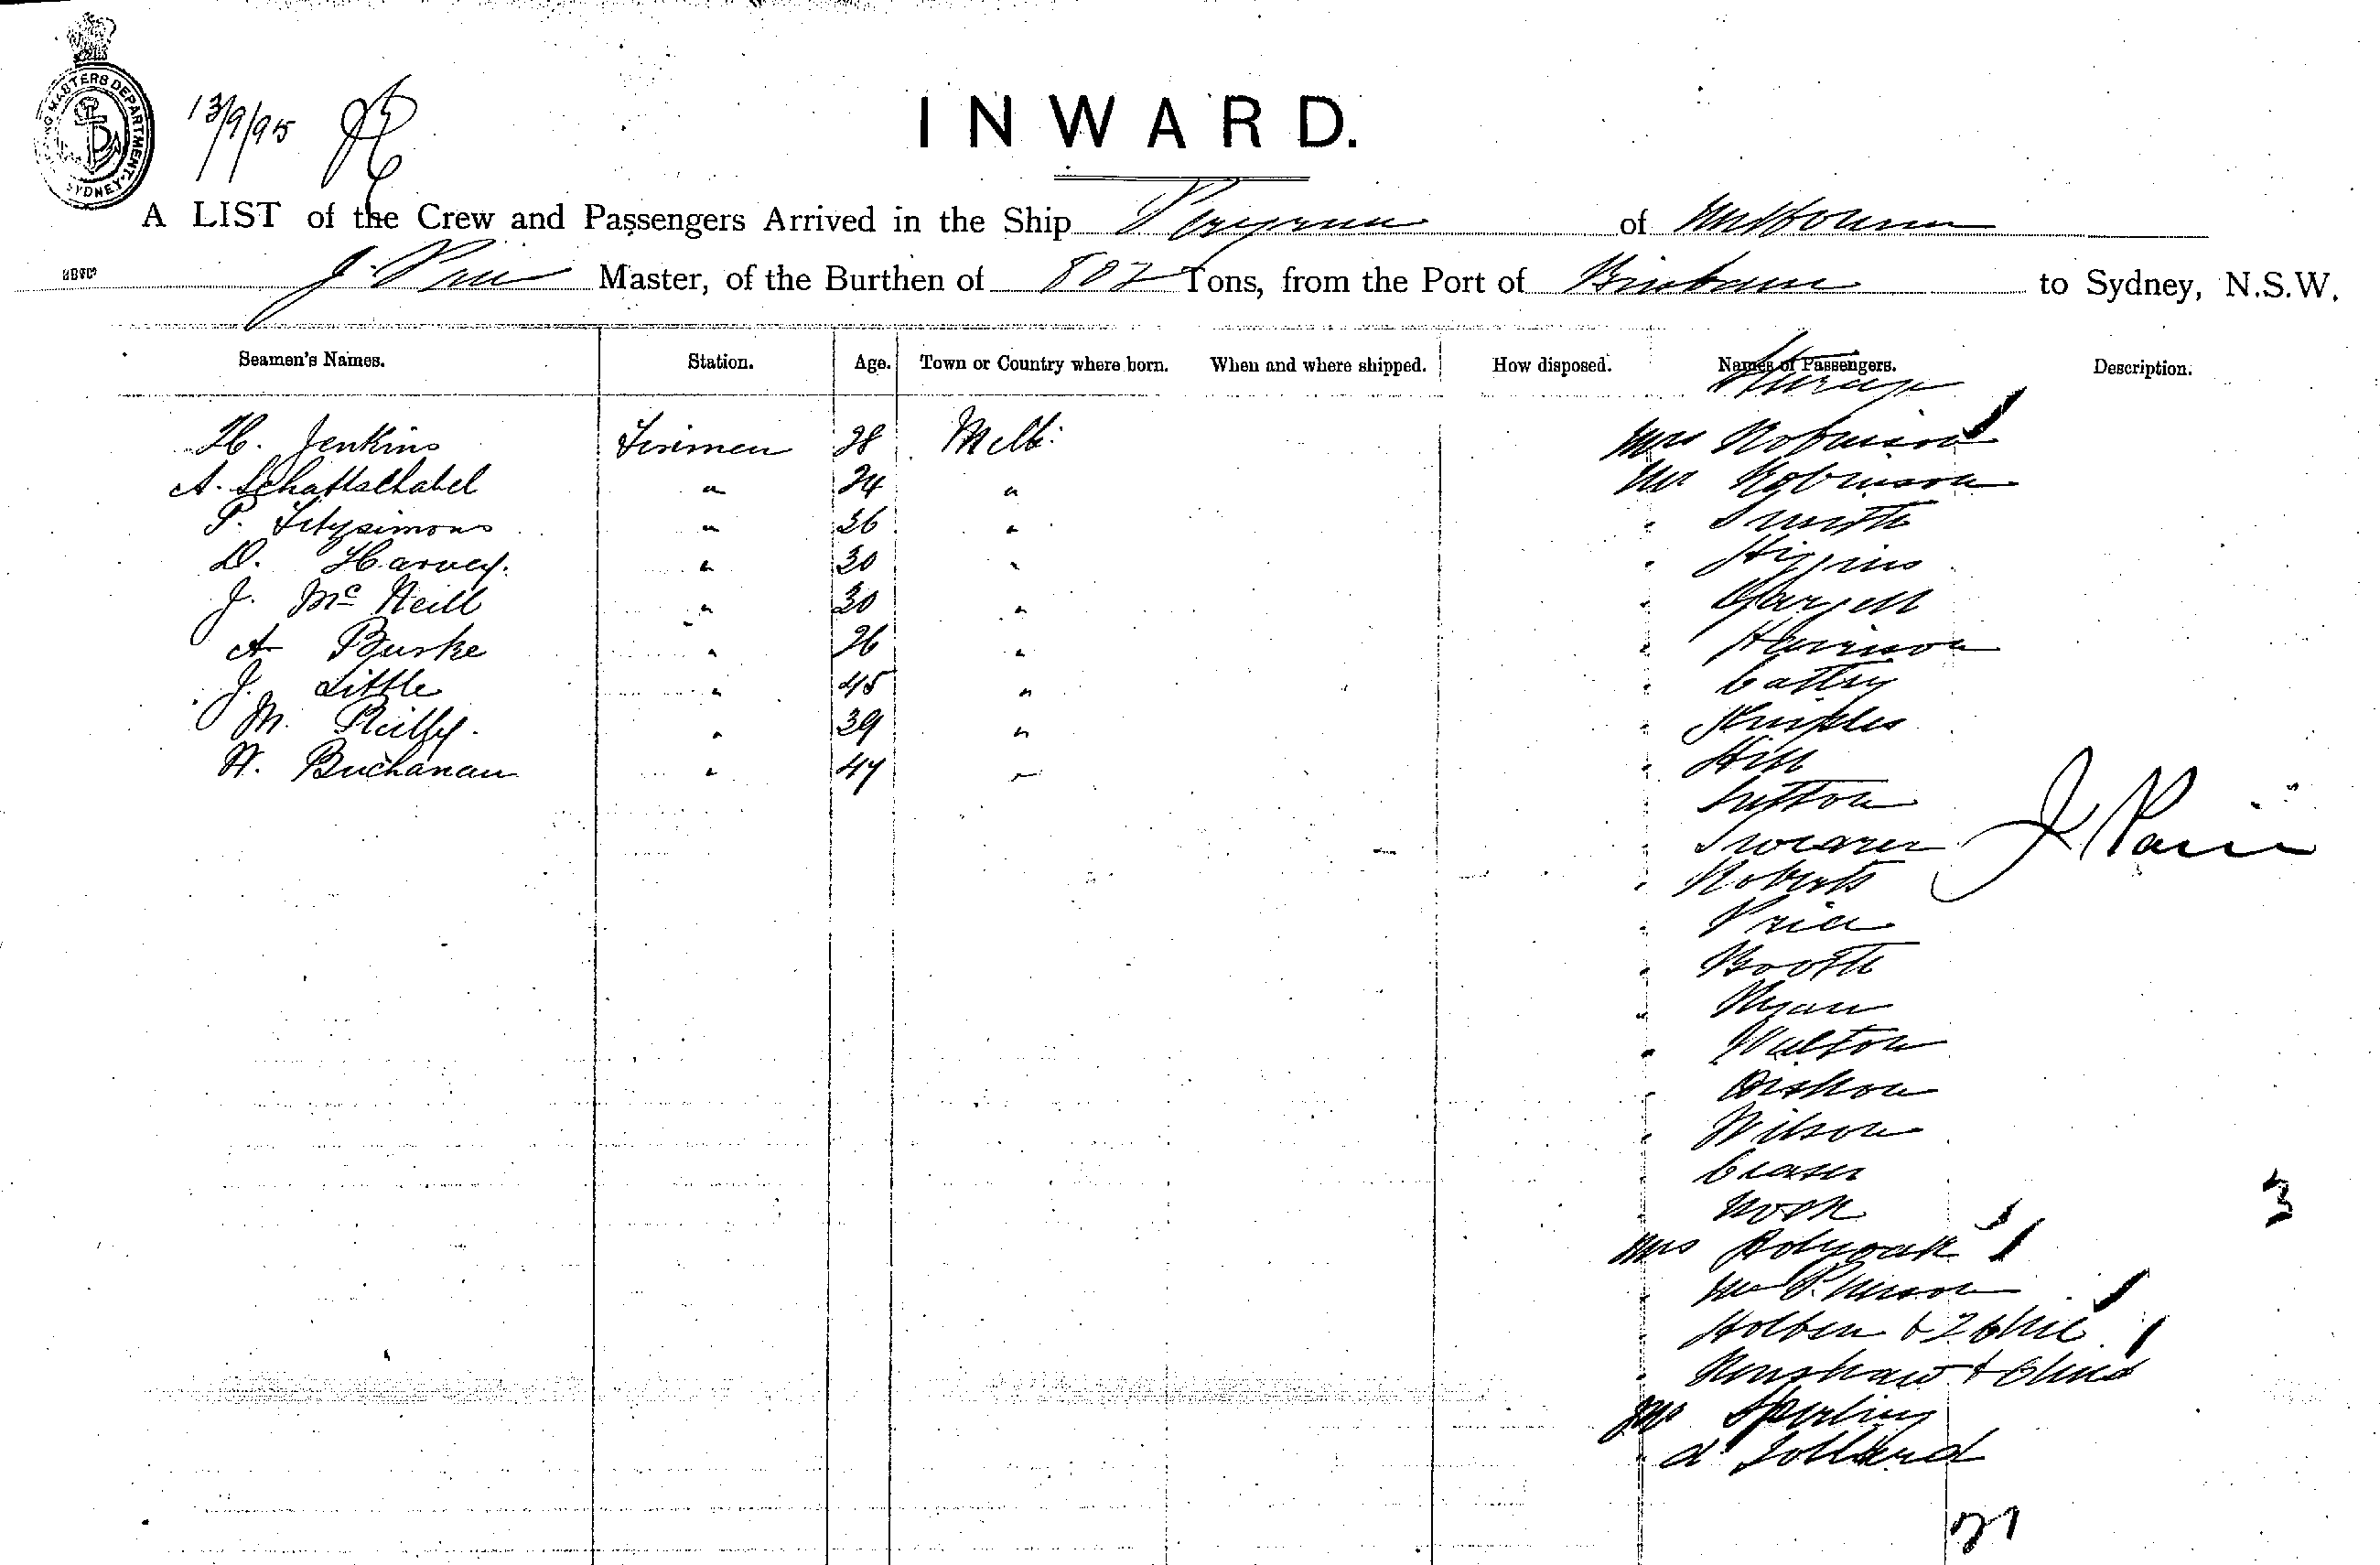 SHIPPING MASTERS DEPARTMENT SYDNEY
13/9/95
INWARD.
A LIST of the Crew and Passengers Arrived in the Ship Peregrine of Melbourne
Master, of the Burthen of 802 Tons, from the Port of Brisbane to Sydney, N.S.W.
Seamen's Names. Station. Age. Town or Country where born. When and where shipped. How disposed. Names of Passengers. Description.
Steerage
H. Jenkins Firemen 28 Melb: Mrs Robinson
A. Schattschabel " 24 " Mr Robinson
P. Fitzsimons " 36 " " Smith
D. Harvey. " 30 " " Higgins
J. McNeill " 30 " "
A Burke " 26 " " Harrison
J. Little " 45 " "
M. Reilly. " 39 " "
W. Buchanan " 47 " " Hill
" Sutton
J Pain
" Roberts
" Price
" Booth
" Ryan
" Walton
" Wilson
"
3
Mrs Holyoak
" Holben & 2 chil
" Renshaw & child
Sperling
71